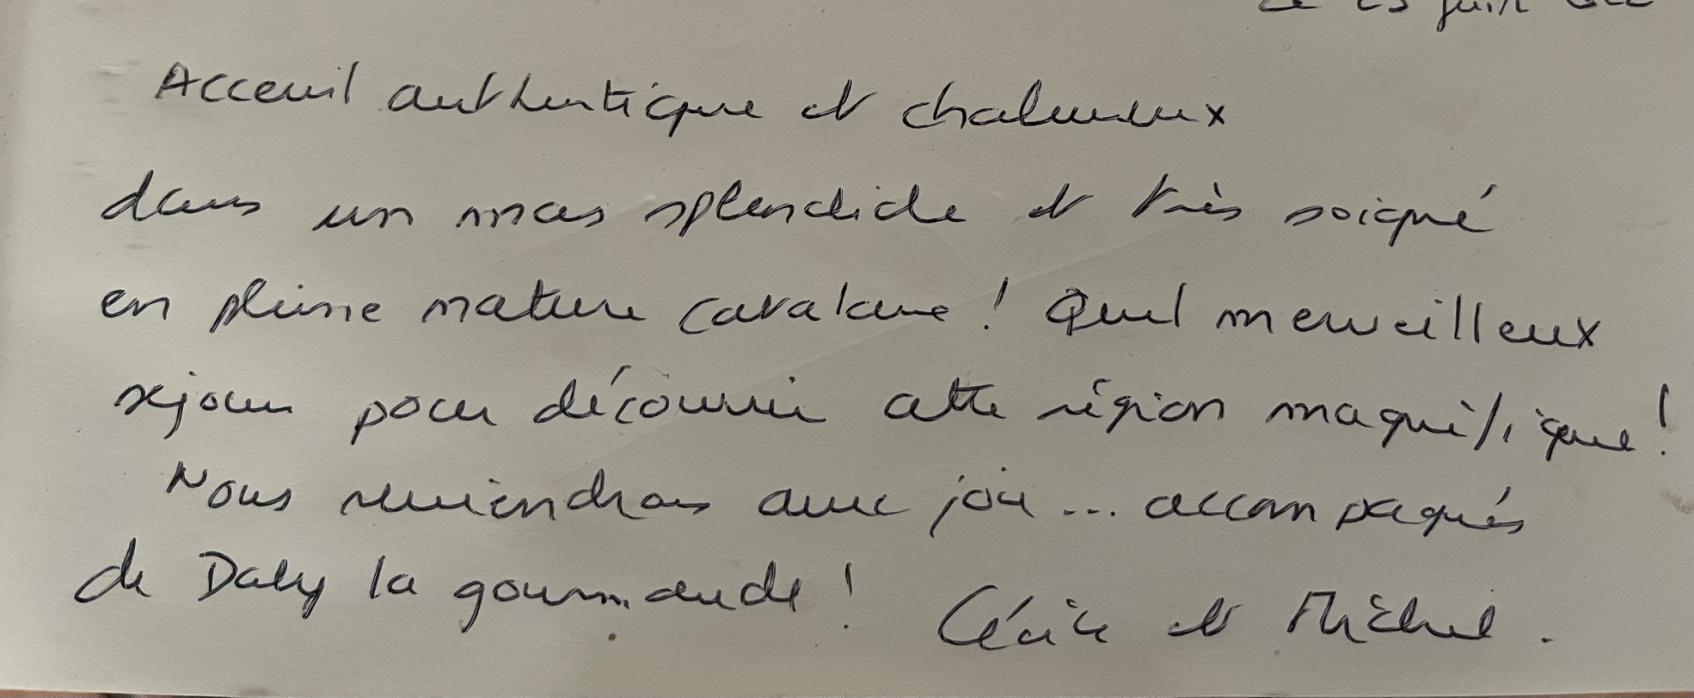 Acceuil authentique et chaleureux
dans un mas splendide et très soigné
en pleine nature catalane ! Quel merveilleux
séjour pour découvrir cette région magnifique !
Nous reviendrons avec joie ... accompagnés
de Daly la gourmande ! Cécile et Michel .